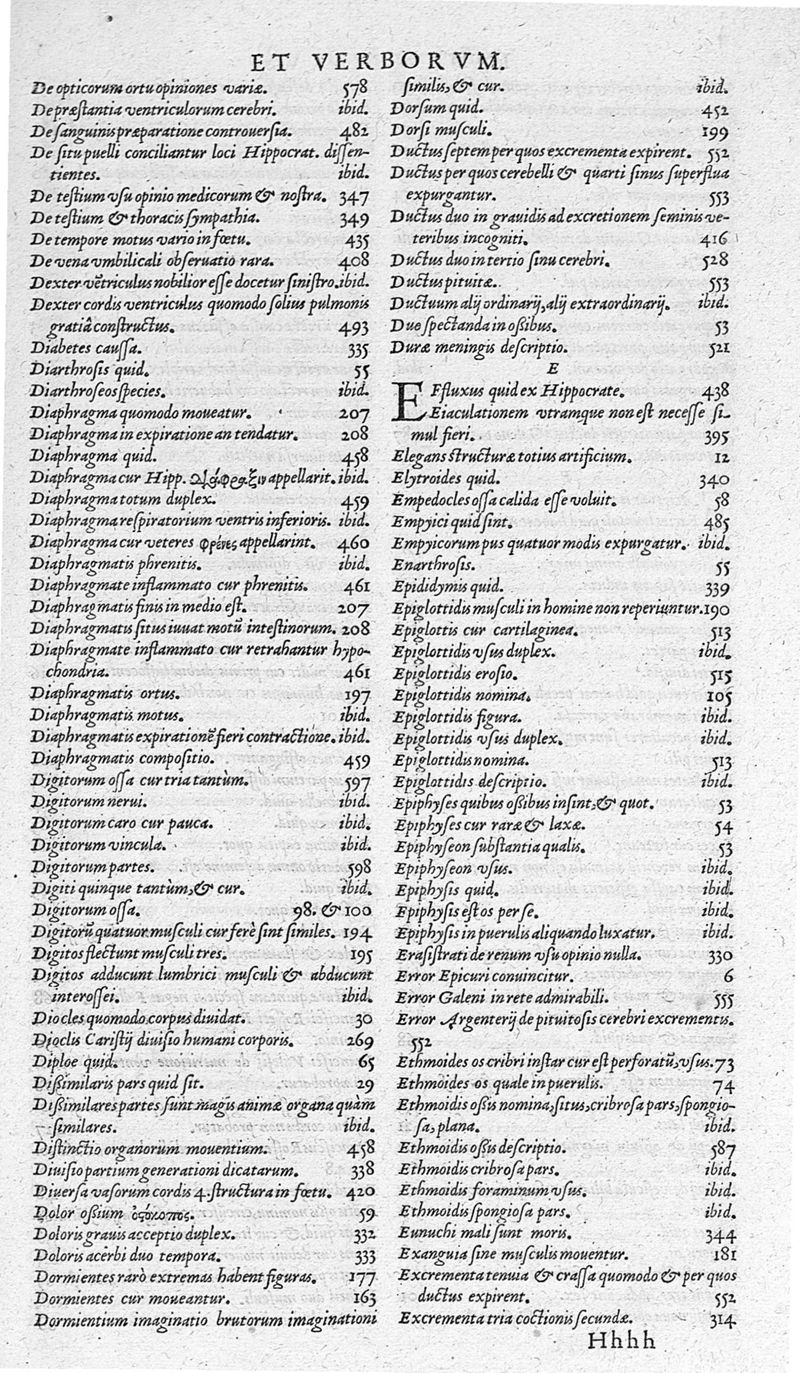 ET VERBORVM.
De opticorum ortu opiniones variæ. 578
De præstantia ventriculorum cerebri. ibid.
De sanguinis præparatione controuersia. 482
De situ puelli conciliantur loci Hippocrat. dissen-
tientes. ibid.
De testium vsu opinio medicorum & nostra. 347
De testium & thoracis sympathia. 349
De tempore motus vario in fœtu. 435
De vena vmbilicali obseruatio rara. 408
Dexter vētriculus nobilior esse docetur sinistro. ibid.
Dexter cordis ventriculus quomodo solius pulmonis
gratiâ constructus. 493
Diabetes caussa. 335
Diarthrosis quid. 55
Diarthroseos species. ibid.
Diaphragma quomodo moueatur. 207
Diaphragma in expiratione an tendatur. 208
Diaphragma quid. 458
Diaphragma cur Hipp. διάφραξιν appellarit. ibid.
Diaphragma totum duplex. 459
Diaphragma respiratorium ventris inferioris. ibid.
Diaphragma cur veteres φρένες appellarint. 460
Diaphragmatis phrenitis. ibid.
Diaphragmate inflammato cur phrenitis. 461
Diaphragmatis finis in medio est. 207
Diaphragmatis situs iuuat motū intestinorum. 208
Diaphragmate inflammato cur retrahantur hypo-
chondria. 461
Diaphragmatis ortus. 197
Diaphragmatis motus. ibid.
Diaphragmatis expirationē fieri contractione. ibid.
Diaphragmatis compositio. 459
Digitorum ossa cur tria tantùm. 597
Digitorum nerui. ibid.
Digitorum caro cur pauca. ibid.
Digitorum vincula. ibid.
Digitorum partes. 598
Digiti quinque tantùm, & cur. ibid.
Digitorum ossa. 98. & 100
Digitorū quatuor musculi cur ferè sint similes. 194
Digitos flectunt musculi tres. 195
Digitos adducunt lumbrici musculi & abducunt
interossei. ibid.
Diocles quomodo corpus diuidat. 30
Dioclis Caristij diuisio humani corporis. 269
Diploe quid. 65
Dissimilaris pars quid sit. 29
Dissimilares partes sunt magis animæ organa quàm
similares. ibid.
Distinctio organorum mouentium. 458
Diuisio partium generationi dicatarum. 338
Diuersa vasorum cordis 4. structura in fœtu. 420
Dolor ossium ὀξύκοπος. 59
Doloris grauis acceptio duplex. 332
Doloris acerbi duo tempora. 333
Dormientes rarò extremas habent figuras. 177
Dormientes cur moueantur. 163
Dormientium imaginatio brutorum imaginationi
similis, & cur. ibid.
Dorsum quid. 452
Dorsi musculi. 199
Ductus septem per quos excrementa expirent. 552
Ductus per quos cerebelli & quarti sinus superflua
expurgantur. 553
Ductus duo in grauidis ad excretionem seminis ve-
teribus incogniti. 416
Ductus duo in tertio sinu cerebri. 528
Ductus pituitæ. 553
Ductuum alij ordinarij, alij extraordinarij. ibid.
Duo spectanda in ossibus. 53
Duræ meningis descriptio. 521
E
EFfluxus quid ex Hippocrate. 438
Eiaculationem vtramque non est necesse si-
mul fieri. 395
Elegans structuræ totius artificium. 12
Elytroides quid. 340
Empedocles ossa calida esse voluit. 58
Empyici quid sint. 485
Empyicorum pus quatuor modis expurgatur. ibid.
Enarthrosis. 55
Epididymis quid. 339
Epiglottidis musculi in homine non reperiuntur. 190
Epiglottis cur cartilaginea. 513
Epiglottidis vsus duplex. ibid.
Epiglottidis erosio. 515
Epiglottidis nomina. 105
Epiglottidis figura. ibid.
Epiglottidis vsus duplex. ibid.
Epiglottidis nomina. 513
Epiglottidis descriptio. ibid.
Epiphyses quibus ossibus insint, & quot. 53
Epiphyses cur raræ & laxæ. 54
Epiphyseon substantia qualis. 53
Epiphyseon vsus. ibid.
Epiphysis quid. ibid.
Epiphysis est os per se. ibid.
Epiphysis in puerulis aliquando luxatur. ibid.
Erasistrati de renum vsu opinio nulla. 330
Error Epicuri conuincitur. 6
Error Galeni in rete admirabili. 555
Error Argenterij de pituitosis cerebri excrementis.
552
Ethmoides os cribri instar cur est perforatū, vsus. 73
Ethmoides os quale in puerulis. 74
Ethmoidis ossis nomina, situs, cribrosa pars, spongio-
sa, plana. ibid.
Ethmoidis ossis descriptio. 587
Ethmoidis cribrosa pars. ibid.
Ethmoidis foraminum vsus. ibid.
Ethmoidis spongiosa pars. ibid.
Eunuchi mali sunt moris. 344
Exanguia sine musculis mouentur. 181
Excrementa tenuia & crassa quomodo & per quos
ductus expirent. 552
Excrementa tria coctionis secundæ. 314
Hhhh